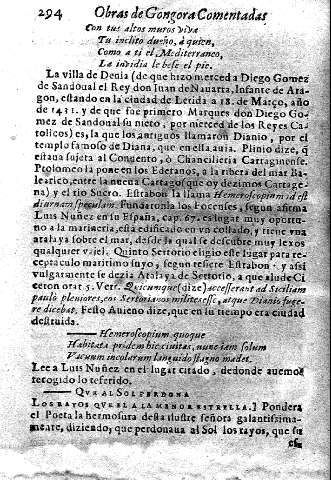 294 Obras de Gongora Comentadas
Con tus altos muros viva
Tu inclito dueño, à quien,
Como a ti el Mediterraneo,
La invidia le bese el pie.
La villa de Denia (de que hizo merced a Diego Gomez
de Sandoual el Rey don Iuan de Nauarra, Infante de Ara-
gon, estando en la ciudad de Lerida a 18. de Março, año
de 1431. y de que fue primero Marques don Diego Go-
mez de Sandoual su nieto, por merced de los Reyes Ca-
tolicos) es, la que los antiguos llamaron Dianio, por el
templo famoso de Diana, que en ella auia. Plinio dize, q̃
estaua sujeta al Conuento, ò Chancileria Cartaginense.
Ptolomeo la pone en los Edetanos, a la ribera del mar Ba-
learico, entre la nueua Cartago (que oy dezimos Cartage-
na) y el rio Sucro. Estrabon la llama Hemeroscopium id est
diurnam speculam. Fundaronla los Focenses, segun afirma
Luis Nuñez en su España, cap. 67. es lugar muy oportu-
no a la marineria, està edificado en vn collado, y tiene vna
atalaya sobre el mar, desde la qual se descubre muy lexos
qualquier vaxel. Quinto Sertorio eligio este lugar para re-
ceptaculo maritimo suyo, segun refiere Estrabon: y assi
vulgarmente se dezia Atalaya de Sertorio, a que alude Ci
ceron orat 5. Verr. Quicumque (dize) accesserant ad Siciliam
paulò pleniores, eos Sertorianos milites esse, atque Dianio fuge-
re dicebat. Festo Auieno dize, que en su tiempo era ciudad
destruida.
Hemeroscopium quoque
Habitata pridem hic ciuitas, nunc iam solum
Vacuum incolarum languido stagno madet.
Lee a Luis Nuñez en el lugar citado, de donde auemos
recogido lo referido.
QVE AL SOL PERDONA
LOS RAYOS QVE EL A LA MENOR ESTRELLA.] Pondera
el Poeta la hermosura desta ilustre señora galantissima-
mente, diziendo, que perdonaua al Sol los rayos, que su